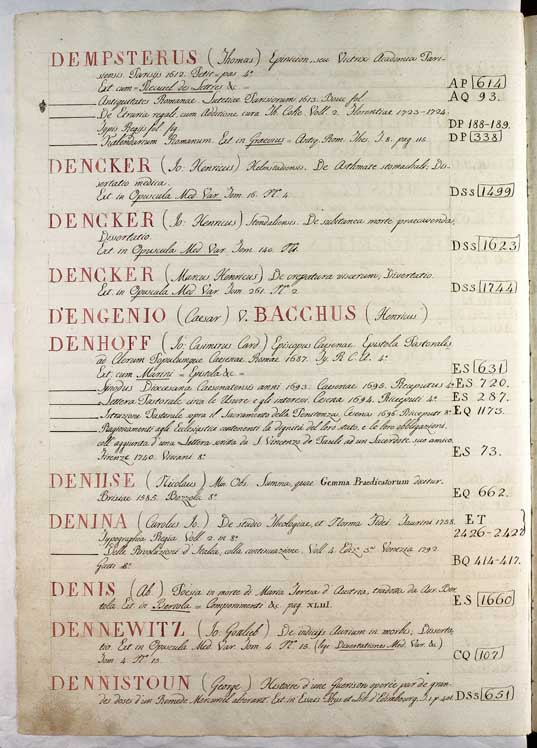 DEMPSTERUS (Thomas) Epinicion, seu Victrix Academia Pari-
siensis. Parisijs 1612. Petit-pas 4°
Est cum = Recueil de Lettres &c = AP 614
Antiquitates Romanae. Lutetiae Parisiorum 1613. Bouc fol. AQ 93.
De Etruria regali, cum Additione cura Th. Coke Voll. 2. Florentiae 1723-1724.
Typis Regijs fol. fig. DP 188-189.
Kalendarium Romanum. Est in Graevius = Antiq. Rom. Thes. T. 8. pag. 115 DP 338
DENCKER (Jo: Henricus) Helmstadensis. De Asthmate stomachali, Dis-
sertatio medica.
Est in Opuscula Med. Var. Tom. 16. N° 4. DSS 1499
DENCKER (Jo: Henricus) Stendaliensis. De subitanea morte praecavenda,
Dissertatio.
Est in Opuscula Med. Var. Tom. 140. DSS 1623
DENCKER (Marcus Henricus) De crepatura viscerum, Dissertatio.
Est in Opuscula Med. Var. Tom. 261. N° 2 DSS 1744
D'ENGENIO (Caesar) V. BACCHUS (Henricus)
DENHOFF (Jo: Casimirus Card) Episcopus Caesenae. Epistola Pastoralis
ad Clerum Populumque Caesenae. Romae 1687. Ty. R. C. A. 4°
Est cum Marini = Epistola &c = ES 631
Synodus Dioecesana Caesenatensis anni 1693. Caesenae 1695. Riceputius 4° ES 720.
Lettera Pastorale circa le Usure e gli interessi. Cesena 1694. Riceputi 4° ES 287.
Istruzione Pastorale sopra il Sacramento della Penitenza. Cesena 1696 Riceputi 8° EQ 1173.
Ragionamenti agli Ecclesiastici contenenti la dignità del loro stato, e le loro obbligazioni,
coll' aggiunta d'una Lettera scritta da S. Vincenzo de Paoli ad un Sacerdote suo amico.
Firenze 1740. Viviani 8° ES 73.
DENIJSE (Nicolaus) Min. Obs. Summa, quae Gemma Praedicatorum dicitur.
Brixiae 1585. Bozzola 8° EQ 662.
DENINA (Carolus Jo.) De studio Theologiae, et Norma Fidei. Taurini 1758.
Typographia Regia Voll. 2 in 8° ET 2426-2427
Delle Rivoluzioni d'Italia, colla continuazione. Voll. 4. Ediz. 3ª Venezia 1792
Gatti 8° BQ 414-417.
DENIS (Ab.) Poesia in morte di Maria Teresa d'Austria, tradotta da Aur. Ber-
tola. Est in Bertola = Componimenti &c. pag. XLIII. ES 1660
DENNEWITZ (Jo: Gotlieb) De indicijs Aurium in morbis, Disserta-
tio. Est in Opuscula Med. Var. Tom. 4. N° 15. (sive Dissertationes Med. Var. &c)
Tom. 4 N° 15. CQ 107
DENNISTOUN (George) Histoire d'une Guerison operée par de gran-
des doses d'un Remede Mercuriel alterant. Est in Essais Phys. et Lit. d'Edimbourg. T. 1. p. 401 DSS 651